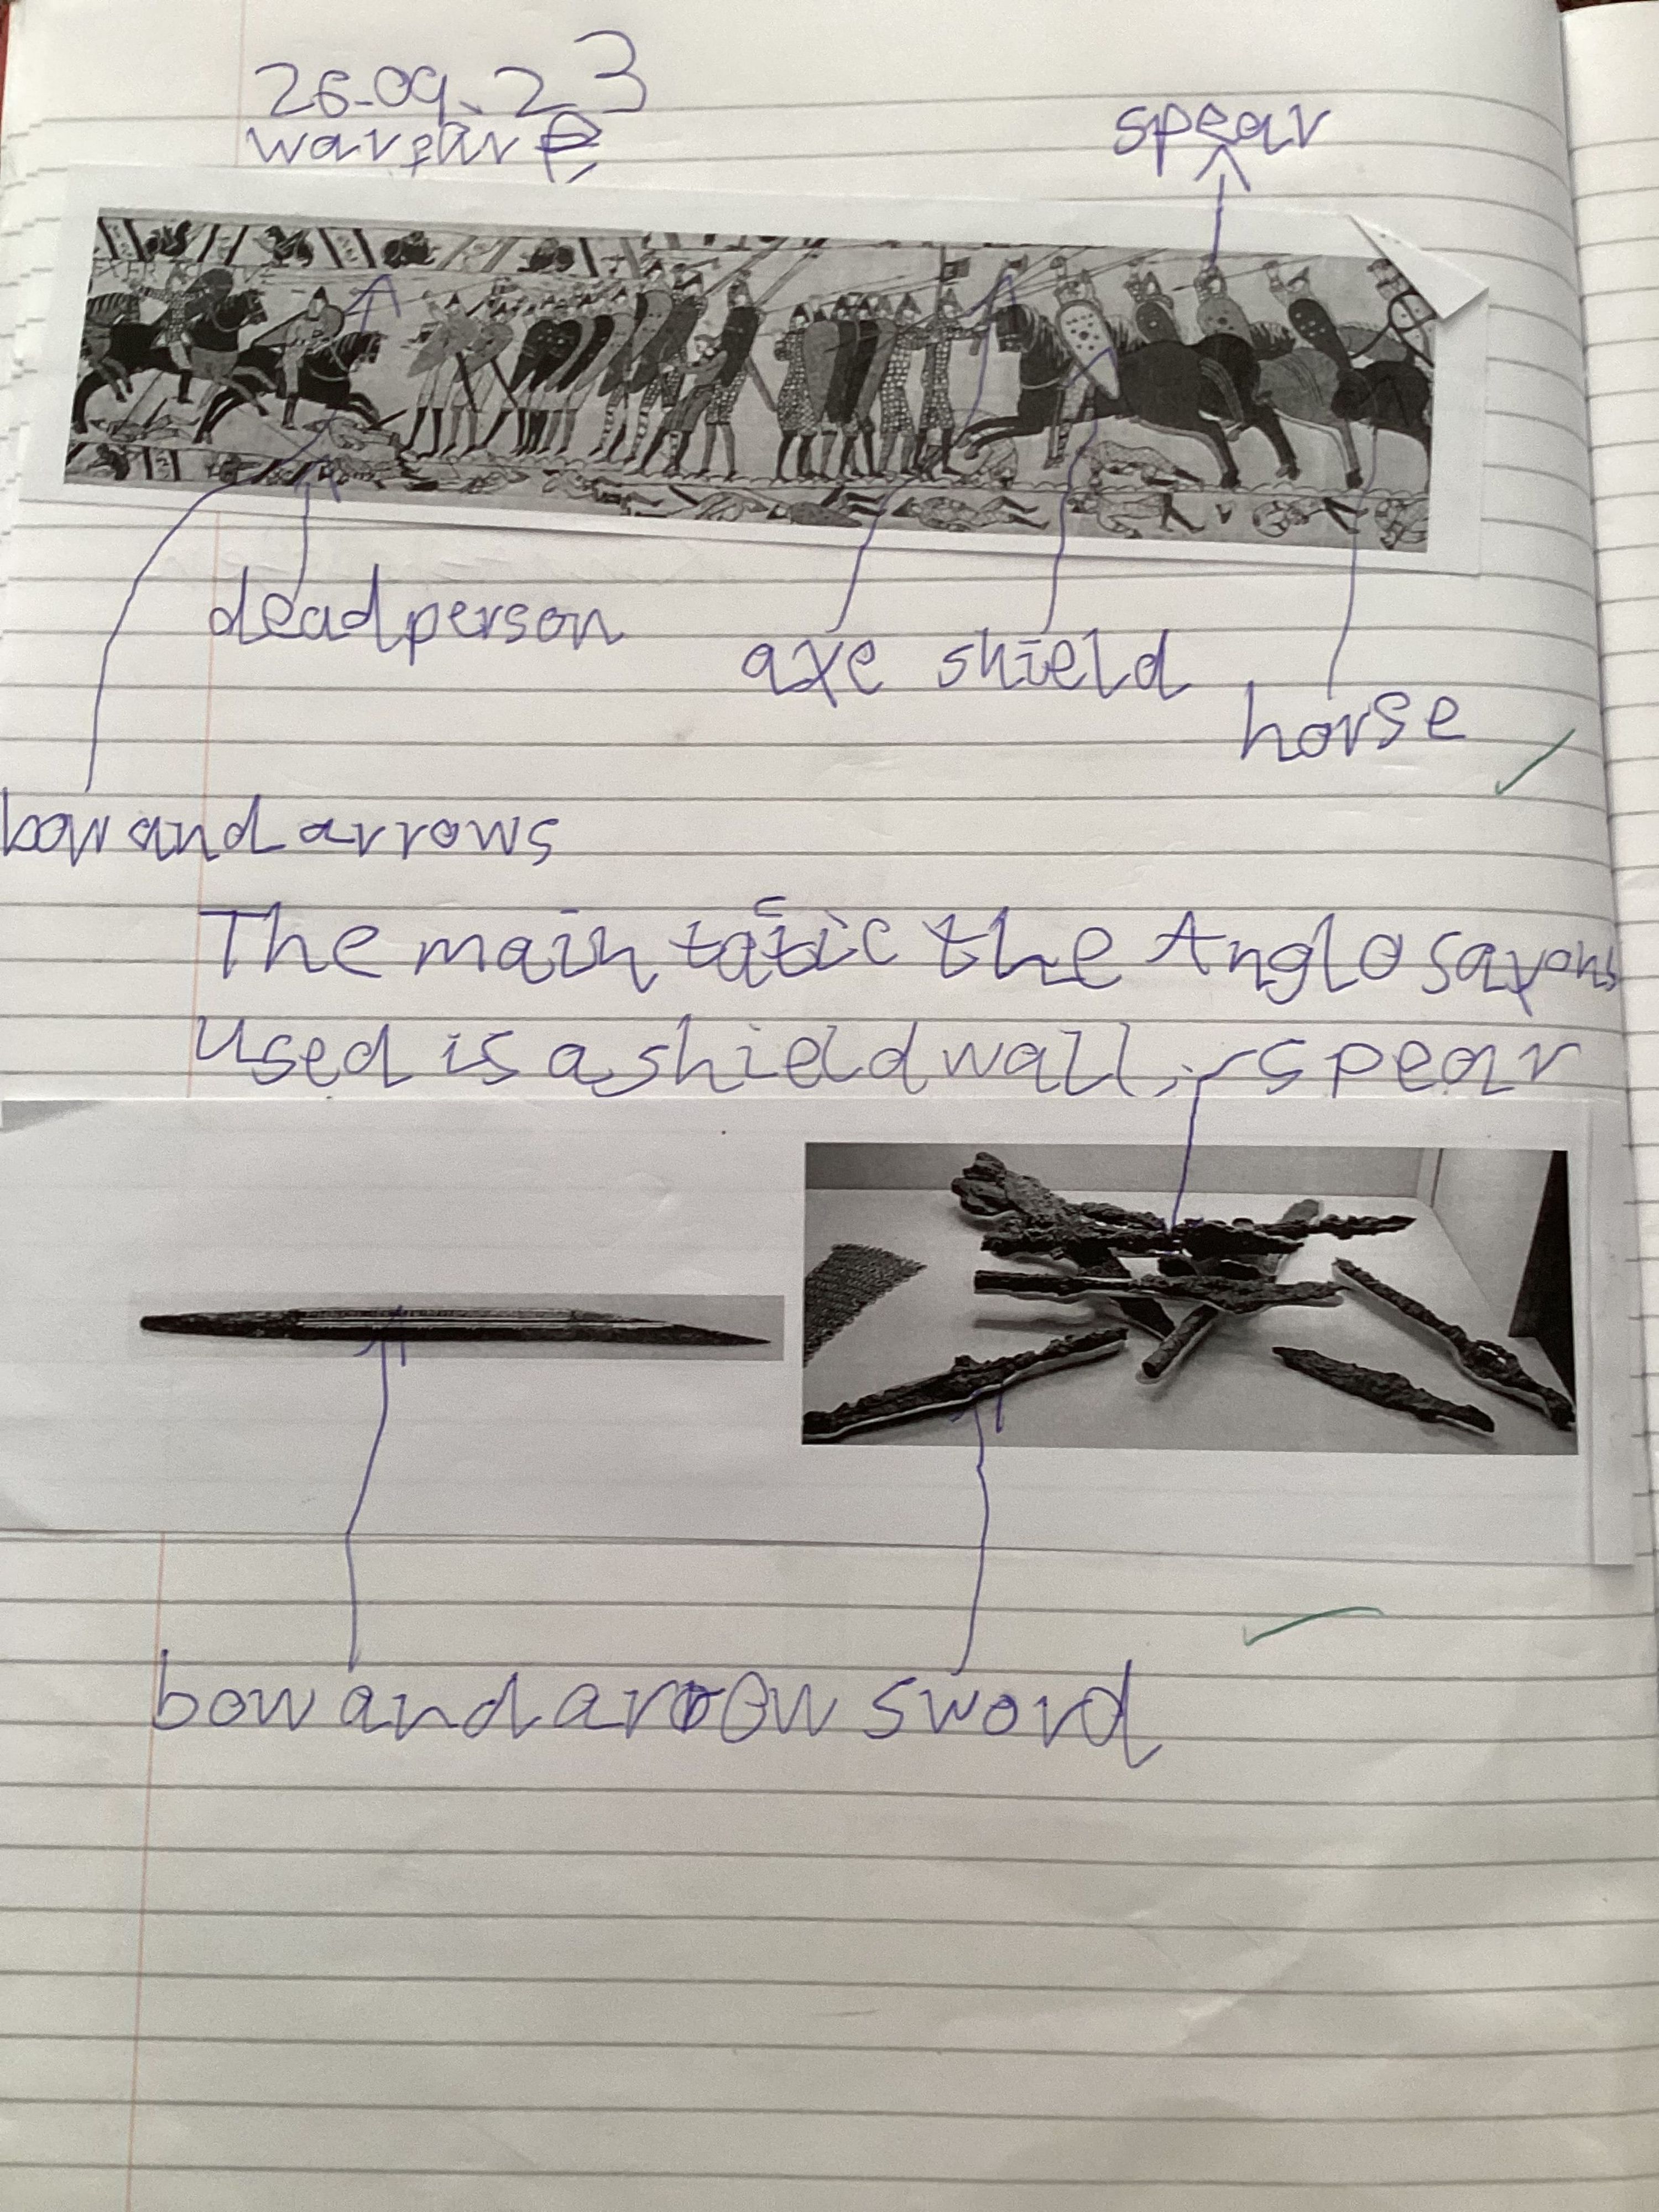 26.09.23
warfare
spear
dead person
axe shield
horse
bow and arrows
The main tactic the Anglo saxons
Used is a shield wall. spear
bow and arrow sword